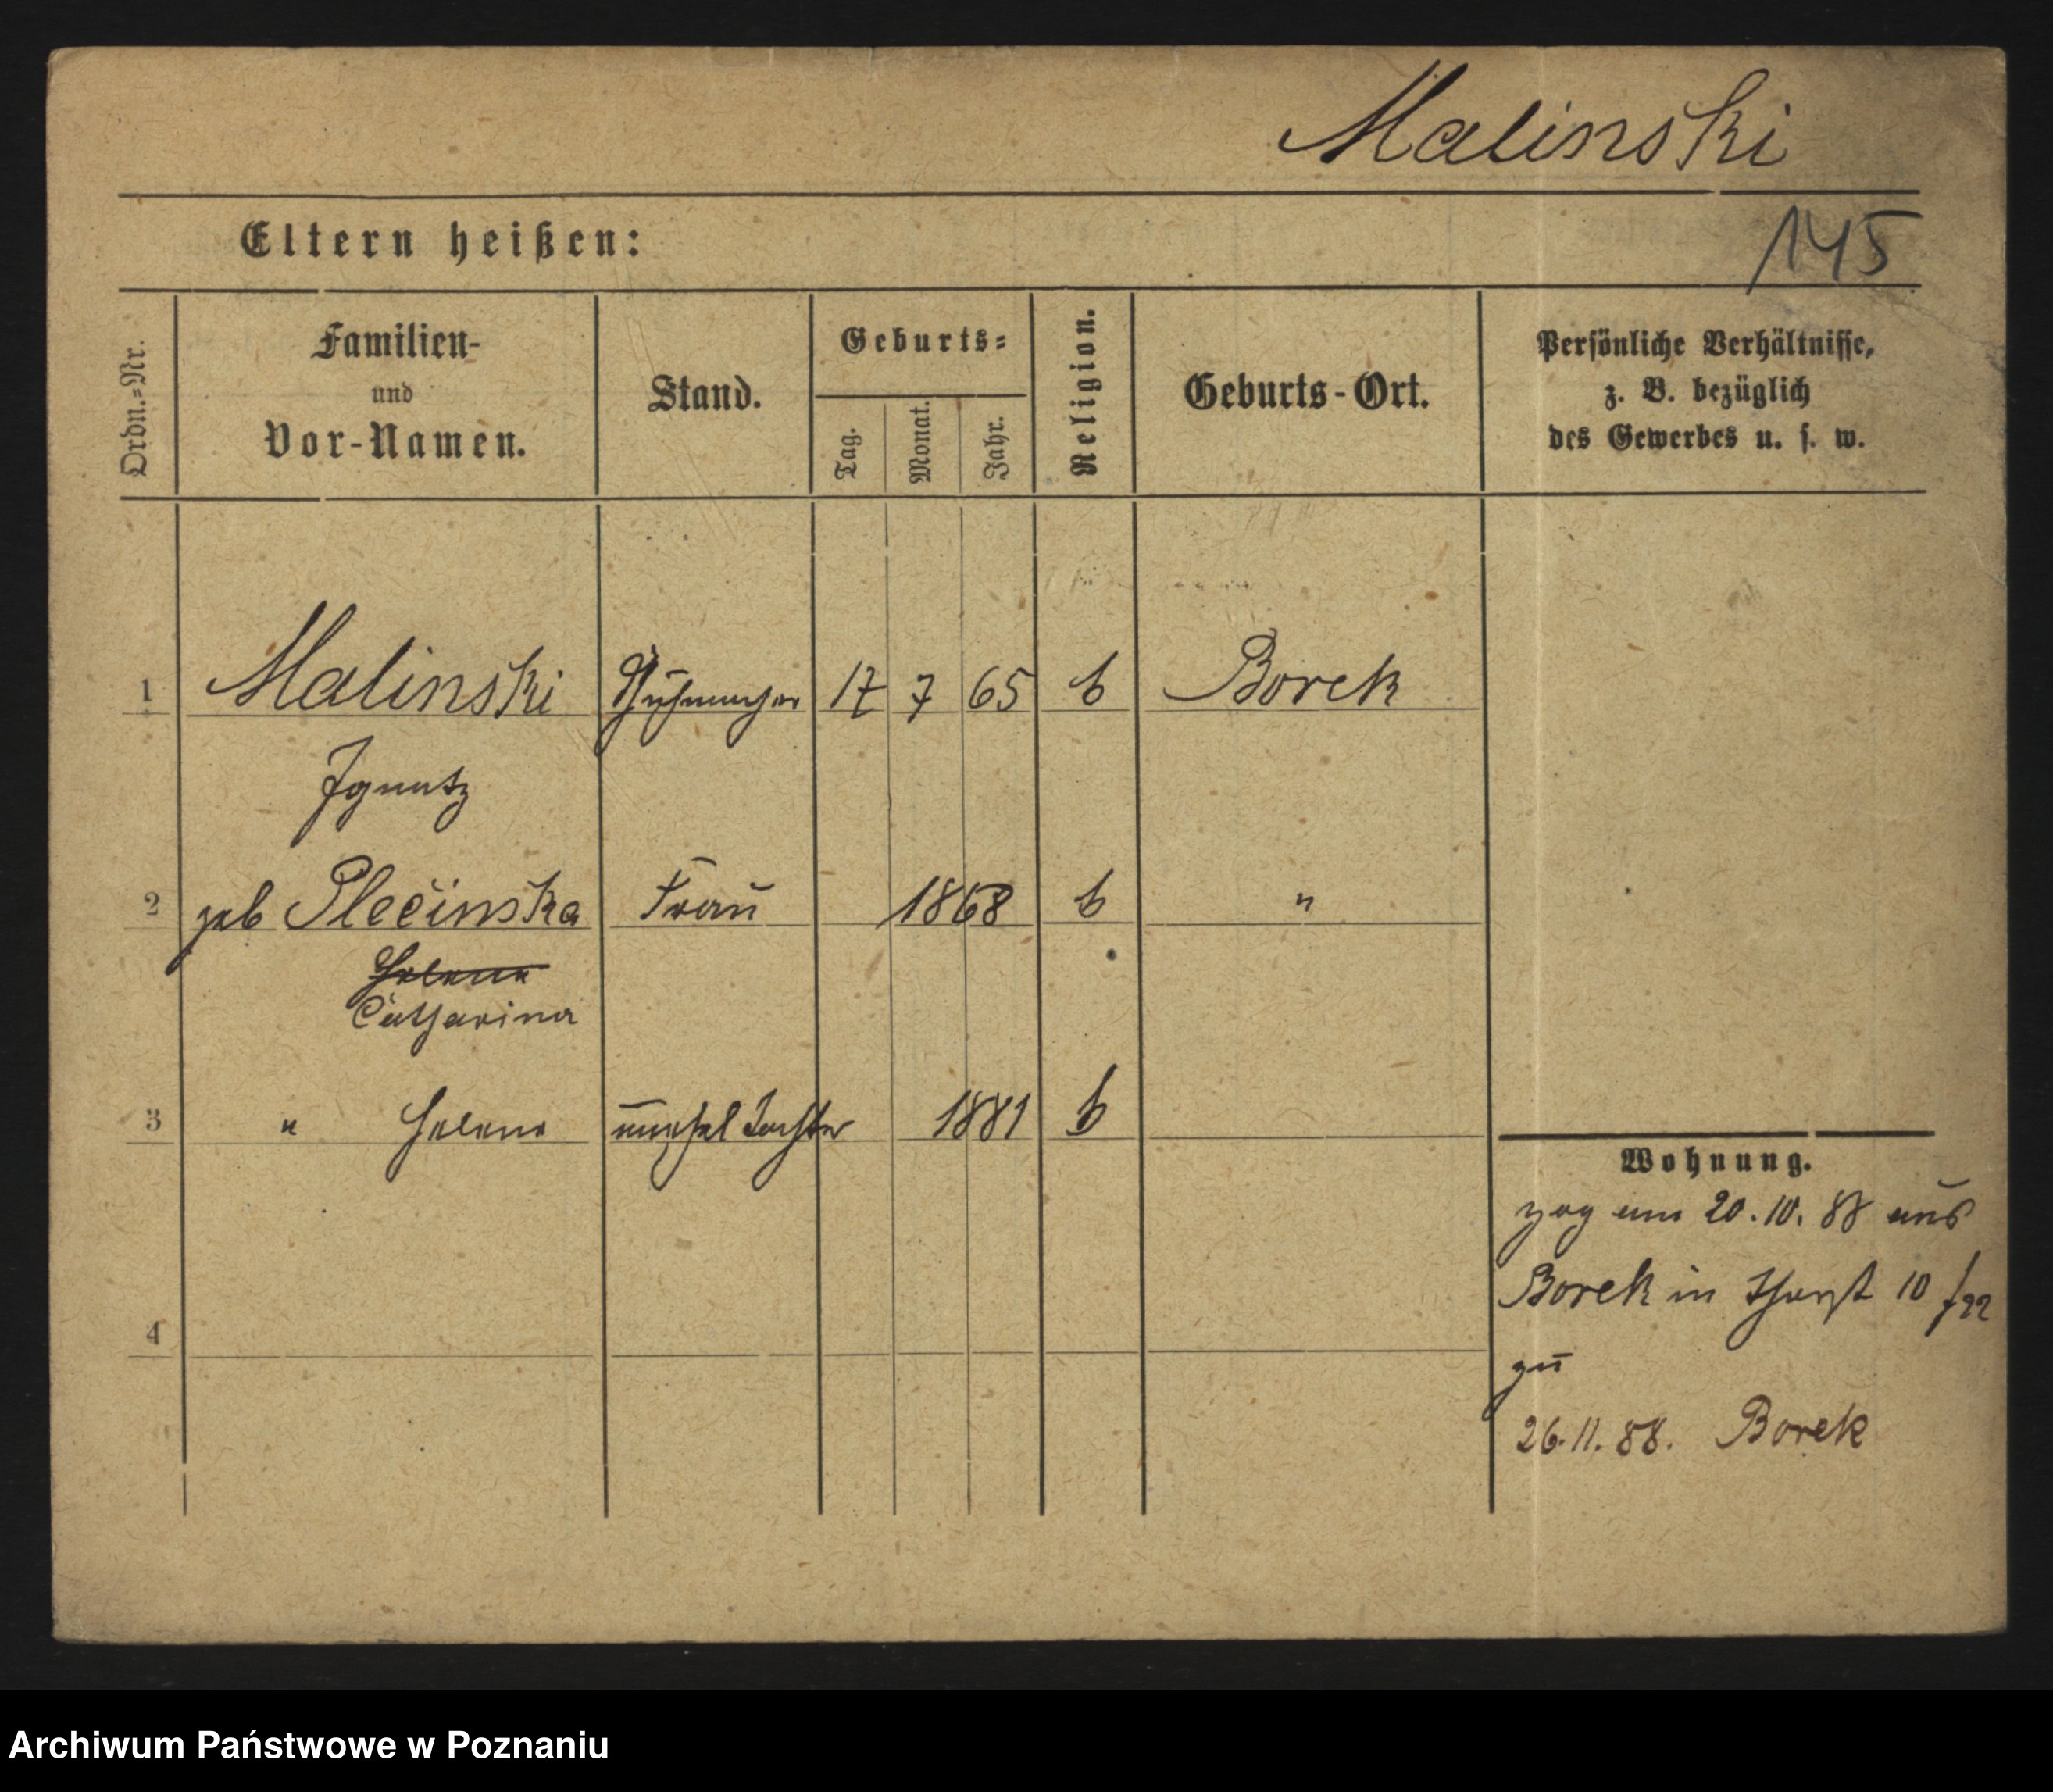 Malinski
Eltern heißen:
145
Ordn.=Nr.
Familien-
und
Vor-Namen.
Stand.
Geburts=
Tag.
Monat.
Jahr.
Religion.
Geburts-Ort.
Persönliche Verhältnisse,
z. B. bezüglich
des Gewerbes u. s. w.
1 Malinski Schuhmacher 17 7 65 k Borek
Ignatz
2 geb Plecinska Frau 1868 k "
Helene
Catharina
3 " Helene unehel Tochter 1881 k
Wohnung.
zog am 20.10.88 aus
Borek in 10 /22
zu
4
26.11.88. Borek
Archiwum Państwowe w Poznaniu